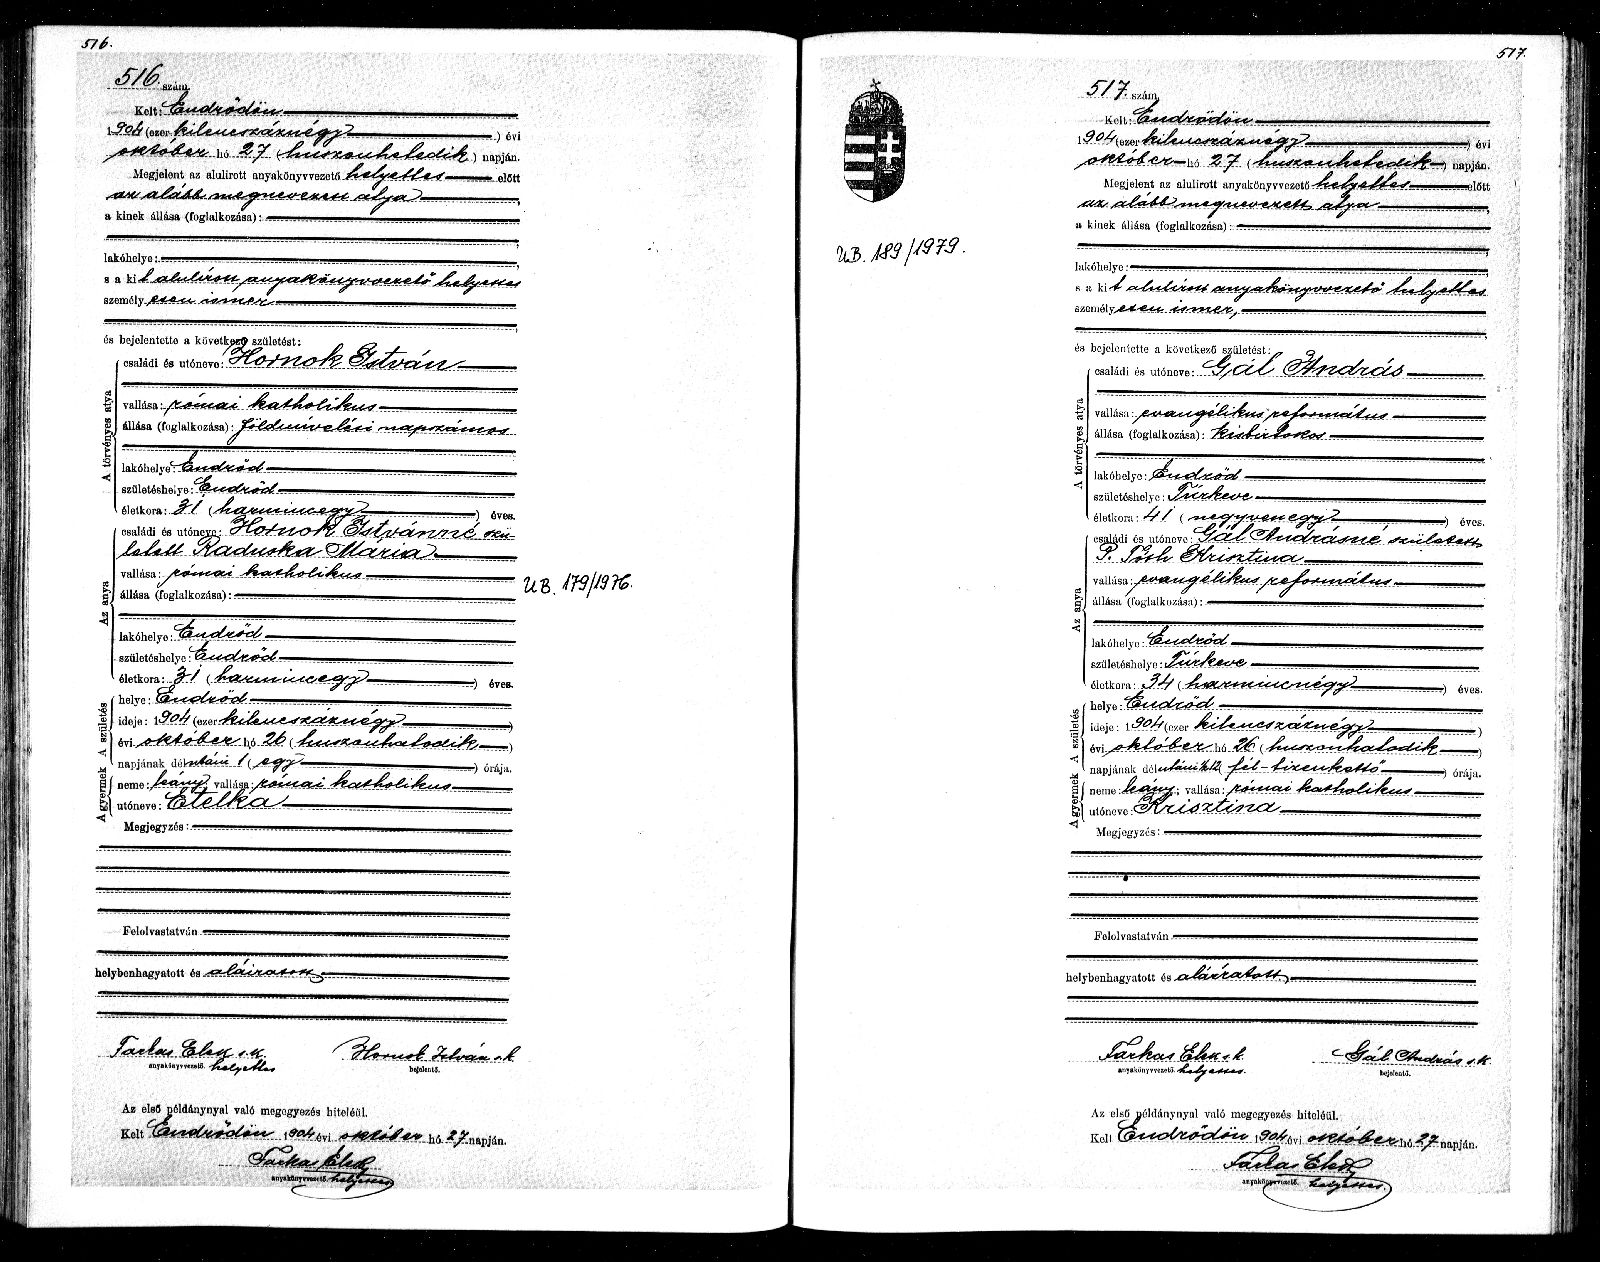 516.
516. szám.
Kelt: Endrődön
1904 (ezer kilencszáznégy) évi
október hó 27 (huszonhetedik) napján.
Megjelent az alulirott anyakönyvvezető helyettes előtt
az alább megnevezett atya
a kinek állása (foglalkozása):
lakóhelye:
s a kit alulirott anyakönyvvezető helyettes
személyesen ismer
és bejelentette a következő születést:
A törvényes atya
családi és utóneve: Hornok István
vallása: római katholikus
állása (foglalkozása): földmivelési napszámos
lakóhelye: Endrőd
születéshelye: Endrőd
életkora: 31 (harmincegy) éves.
Az anya
családi és utóneve: Hornok Istvánné szü-
letett Raduska Mária
vallása: római katholikus
állása (foglalkozása):
lakóhelye: Endrőd
születéshelye: Endrőd
életkora: 31 (harmincegy) éves.
A születés
helye: Endrőd
ideje: 1904 (ezer kilencszáznégy)
évi október hó 26 (huszonhatodik)
napjának délutáni 1 (egy) órája.
A gyermek
neme: leány; vallása: római katholikus
utóneve: Etelka
Megjegyzés:
Felolvastatván
helybenhagyatott és aláiratott
Farkas Elek s.k. Hornok István s.k.
anyakönyvvezető. helyettes bejelentő.
Az első példánynyal való megegyezés hiteléül.
Kelt Endrődön 1904 évi október hó 27 napján.
Farkas Elek
anyakönyvvezető. helyettes
UB. 179/1976.
517.
517. szám.
UB. 189/1979.
Kelt: Endrődön
1904 (ezer kilencszáznégy) évi
október hó 27 (huszonhetedik) napján.
Megjelent az alulirott anyakönyvvezető helyettes előtt
az alább megnevezett atya
a kinek állása (foglalkozása):
lakóhelye:
s a kit alulirott anyakönyvvezető helyettes
személyesen ismer,
és bejelentette a következő születést:
A törvényes atya
családi és utóneve: Gál András
vallása: evangélikus református
állása (foglalkozása): kisbirtokos
lakóhelye: Endrőd
születéshelye: Túrkeve
életkora: 41 (negyvenegy) éves.
Az anya
családi és utóneve: Gál Andrásné született
P. Tóth Krisztina
vallása: evangélikus református
állása (foglalkozása):
lakóhelye: Endrőd
születéshelye: Túrkeve
életkora: 34 (harmincnégy) éves.
A születés
helye: Endrőd
ideje: 1904 (ezer kilencszáznégy)
évi október hó 26 (huszonhatodik)
napjának délutáni ½12 fél-tizenkettő) órája.
A gyermek
neme: leány; vallása: római katholikus
utóneve: Krisztina
Megjegyzés:
Felolvastatván
helybenhagyatott és aláiratott
Farkas Elek s.k. Gál András s.k.
anyakönyvvezető. helyettes. bejelentő.
Az első példánynyal való megegyezés hiteléül.
Kelt Endrődön 1904 évi október hó 27 napján.
Farkas Elek
anyakönyvvezető. helyettes.